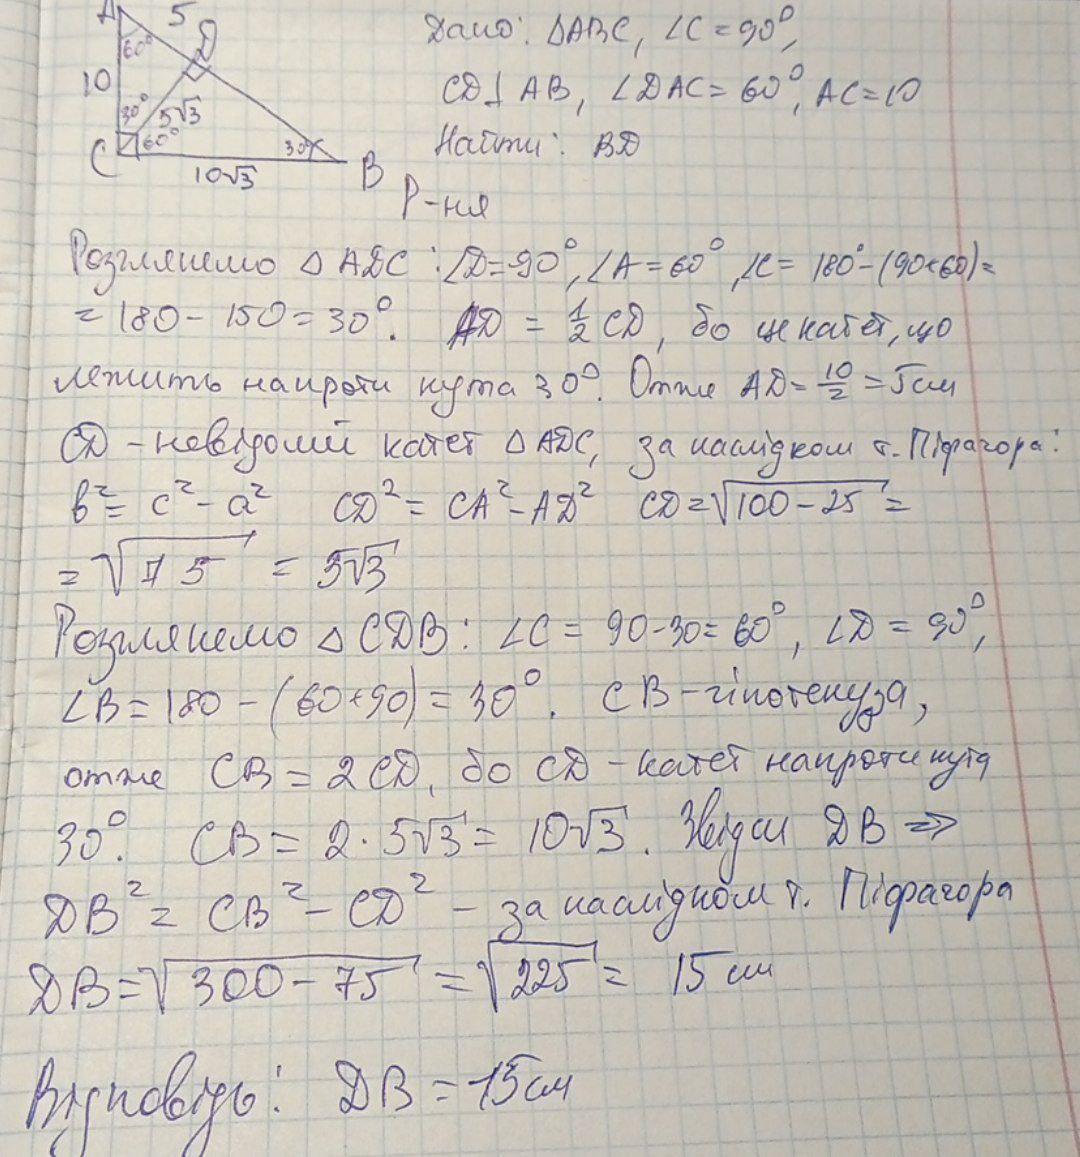 A 5 D
60°
10 30° 5√3
C 60° 30 B
10√3
Дано: △ABC, ∠C = 90°,
CD⊥AB, ∠DAC = 60°, AC = 10
Найти: BD
Р-ня
Розглянемо △ADC: ∠D=90°, ∠A=60°, ∠C= 180°-(90+60)=
= 180 - 150 = 30°. AD = 1/2 CD, бо це катет, що
лежить напроти кута 30°. Отже AD = 10/2 = 5 см
CD - невідомий катет △ADC, за наслідком т. Піфагора:
b² = c² - a² CD² = CA² - AD² CD = √100 - 25 =
= √75 = 5√3
Розглянемо △CDB: ∠C = 90-30 = 60°, ∠D = 90°,
∠B = 180 - (60+90) = 30°. CB - гіпотенуза,
отже CB = 2CD, бо CD - катет напроти кута
30°. CB = 2 · 5√3 = 10√3. Звідси DB =>
DB² = CB² - CD² - за наслідком т. Піфагора
DB = √300 - 75 = √225 = 15 см
Відповідь: DB = 15 см